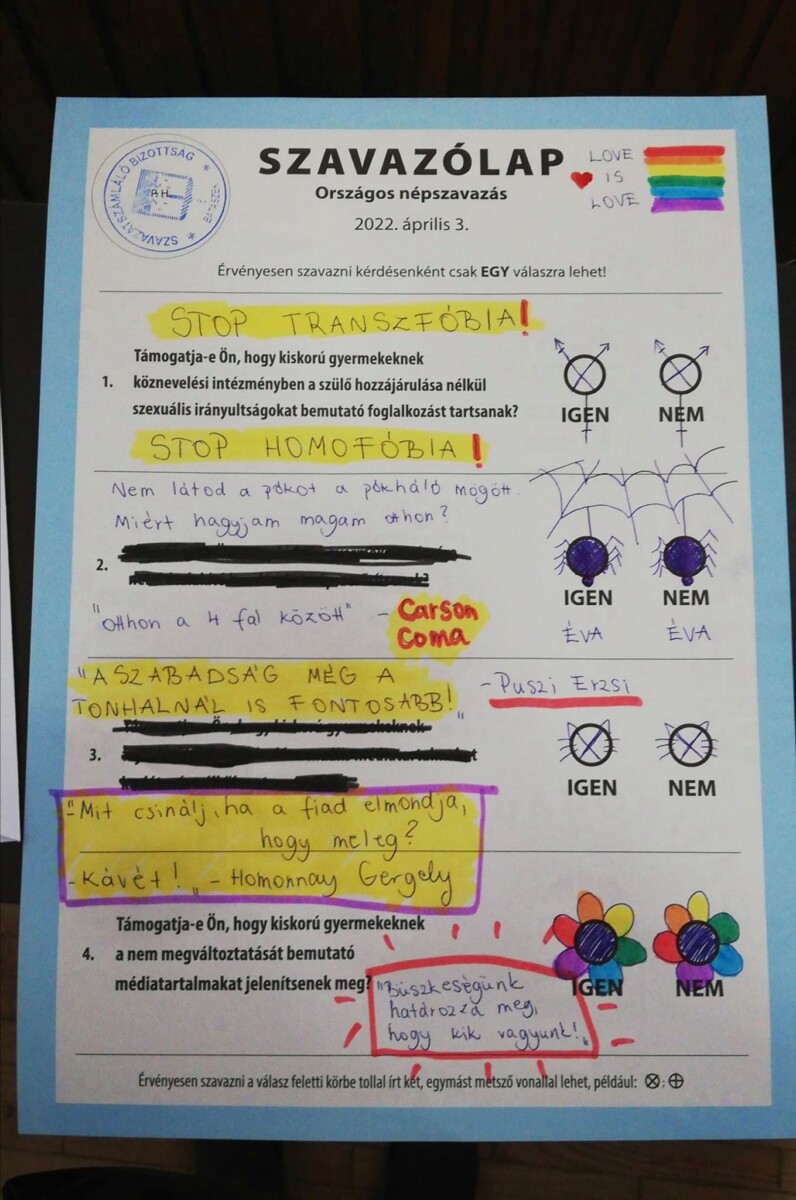 SZAVAZATSZÁMLÁLÓ BIZOTTSÁG
P.H.
SZAVAZÓLAP
Országos népszavazás
2022. április 3.
LOVE
IS
LOVE
Érvényesen szavazni kérdésenként csak EGY válaszra lehet!
STOP TRANSZFÓBIA!
Támogatja-e Ön, hogy kiskorú gyermekeknek
1. köznevelési intézményben a szülő hozzájárulása nélkül
szexuális irányultságokat bemutató foglalkozást tartsanak?
IGEN NEM
STOP HOMOFÓBIA!
Nem látod a pókot a pókháló mögött.
Miért hagyjam magam otthon?
2.
IGEN NEM
"Otthon a 4 fal között" - Carson
Coma
ÉVA ÉVA
"A SZABADSÁG MÉG A
TONHALNÁL IS FONTOSABB!"
- Puszi Erzsi
3.
IGEN NEM
"-Mit csinálj, ha a fiad elmondja,
hogy meleg?
- Kávét!" - Homonnay Gergely
Támogatja-e Ön, hogy kiskorú gyermekeknek
4. a nem megváltoztatását bemutató
médiatartalmakat jelenítsenek meg?
IGEN NEM
"Büszkeségünk
határozza meg,
hogy kik vagyunk!"
Érvényesen szavazni a válasz feletti körbe tollal írt két, egymást metsző vonallal lehet, például: ⊗; ⊕